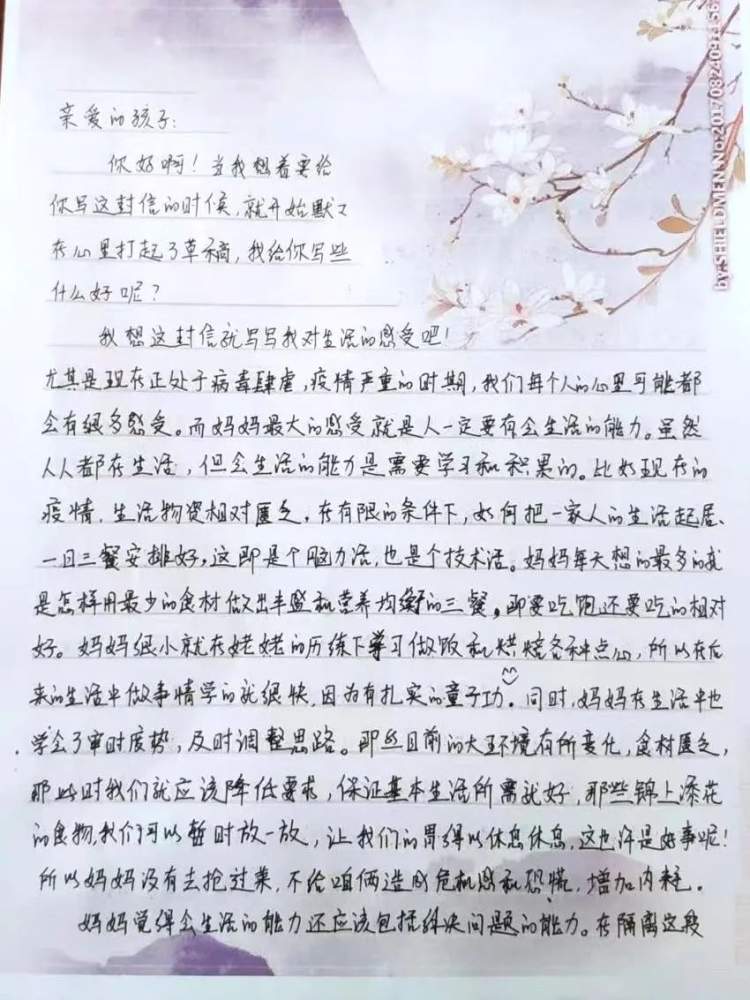 亲爱的孩子:
你好啊!当我想着要给
你写这封信的时候,就开始默々
在心里打起了草稿,我给你写些
什么好呢?
我想这封信就写写我对生活的感受吧!
尤其是现在正处于病毒肆虐,疫情严重的时期,我们每个人的心里可能都
会有很多感受。而妈妈最大的感受就是人一定要有会生活的能力。虽然
人人都在生活,但会生活的能力是需要学习和积累的。比如现在的
疫情,生活物资相对匮乏,在有限的条件下,如何把一家人的生活起居、
一日三餐安排好,这即是个脑力活,也是个技术活。妈妈每天想的最多的就
是怎样用最少的食材做出丰盛和营养均衡的三餐。即要吃饱还要吃的相对
好。妈妈很小就在姥姥的历练下学习做饭和烘焙各种点心,所以在后
来的生活中做事情学的就很快,因为有扎实的童子功。同时,妈妈在生活中也
学会了审时度势,及时调整思路。即然目前的大环境有所变化,食材匮乏,
那此时我们就应该降低要求,保证基本生活所需就好,那些锦上添花
的食物,我们可以暂时放一放,让我们的胃得以休息休息,这也许是好事呢!
所以妈妈没有去抢过菜,不给咱俩造成危机感和恐慌,增加内耗。
妈妈觉得会生活的能力还应该包括解决问题的能力。在隔离这段
by:SHIELDMEN No.20170824091156